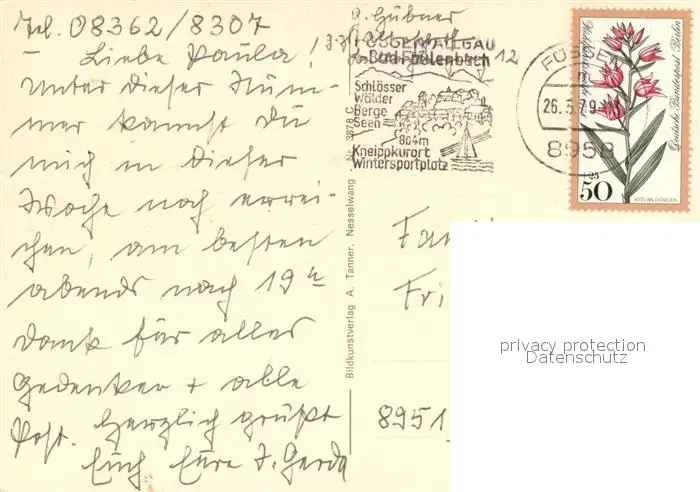 Tel. 08362/8307
Liebe Paula!
Unter dieser Num-
mer kannst du
mich in dieser
Woche noch errei-
chen, am besten
abends nach 19 h
Dank für alles
Gedenken + alle
Post. Herzlich grüßt
Euch Eure T. Gerda
Hübner
12
FÜSSEN ALLGÄU
Bad Faulenbach
Schlösser
Wälder
Berge
Seen
804m
Kneippkurort
Wintersportplatz
FÜSSEN
26.3.79
8958
Deutsche Bundespost Berlin
+25
50
ROTES WALDVÖGELEIN
Bildkunstverlag A. Tanner, Nesselwang, Nr. 3878 C
Fri
8951
privacy protection
Datenschutz